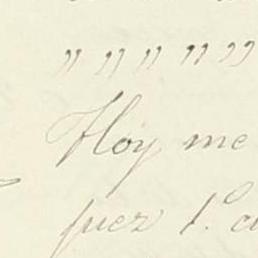 " " " " "
Hoy me
juez 1.º